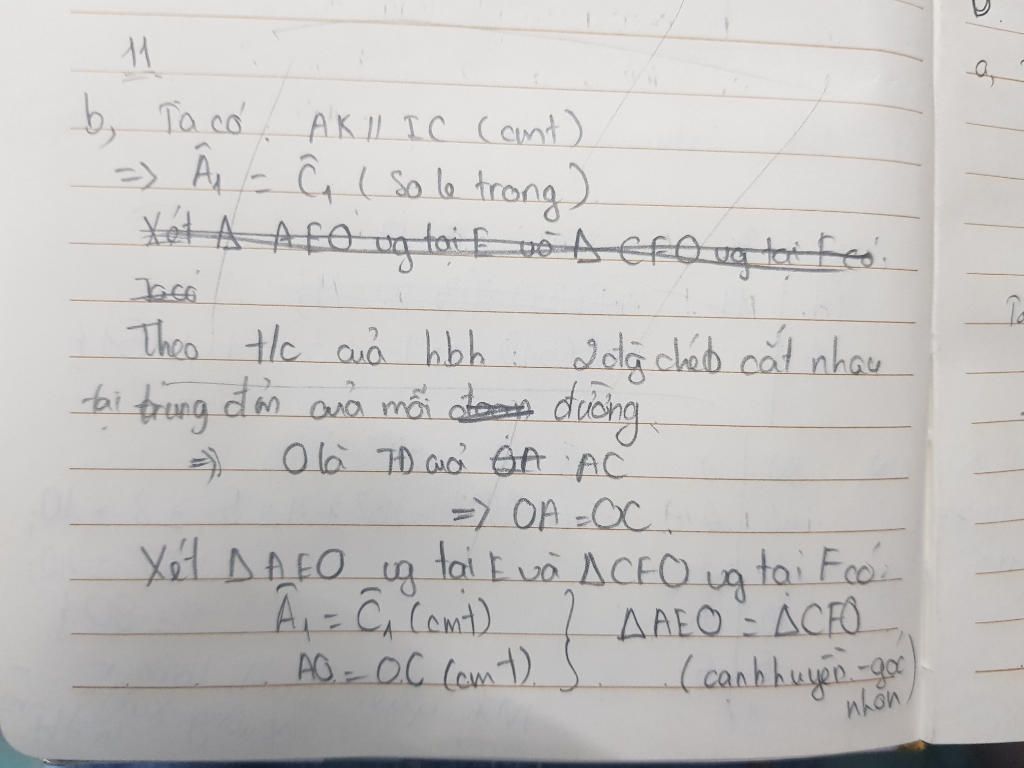 11
b, Ta có : AK // IC (cmt)
=> Â₁ = Ĉ₁ (so le trong)
Xét Δ AEO vg tại E và Δ CFO vg tại F có:
Ta có
Theo t/c của hbh : 2 đg chéo cắt nhau
tại trung điểm của mỗi đường.
=> O là TĐ của OA AC
=> OA = OC.
Xét Δ AEO vg tại E và Δ CFO vg tại F có:
Â₁ = Ĉ₁ (cmt) } Δ AEO = Δ CFO
AO = OC (cmt) (cạnh huyền - góc
nhọn)
D.
a,
Ta